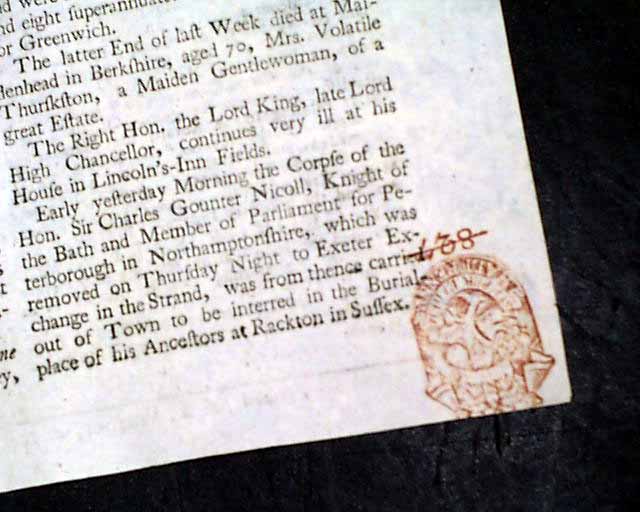 nd eight ſuperannuate
or Greenwich.
The latter End of laſt Week died at Mai-
denhead in Berkſhire, aged 70, Mrs. Volatile
Thurſkſton, a Maiden Gentlewoman, of a
great Eſtate.
The Right Hon. the Lord King, late Lord
High Chancellor, continues very ill at his
Houſe in Lincoln's-Inn Fields.
Early yeſterday Morning the Corpſe of the
Hon. Sir Charles Gounter Nicoll, Knight of
the Bath and Member of Parliament for Pe-
terborough in Northamptonſhire, which was
removed on Thurſday Night to Exeter Ex-
change in the Strand, was from thence carried
out of Town to be interred in the Burial-
place of his Anceſtors at Rackton in Suſſex.